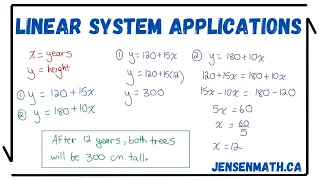 LINEAR SYSTEM APPLICATIONS
x = years
y = height
① y = 120 + 15x
② y = 180 + 10x
① y = 120 + 15x
y = 120 + 15(12)
y = 300
② y = 180 + 10x
120 + 15x = 180 + 10x
15x - 10x = 180 - 120
5x = 60
x = 60/5
x = 12
After 12 years, both trees
will be 300 cm tall.
JENSENMATH.CA